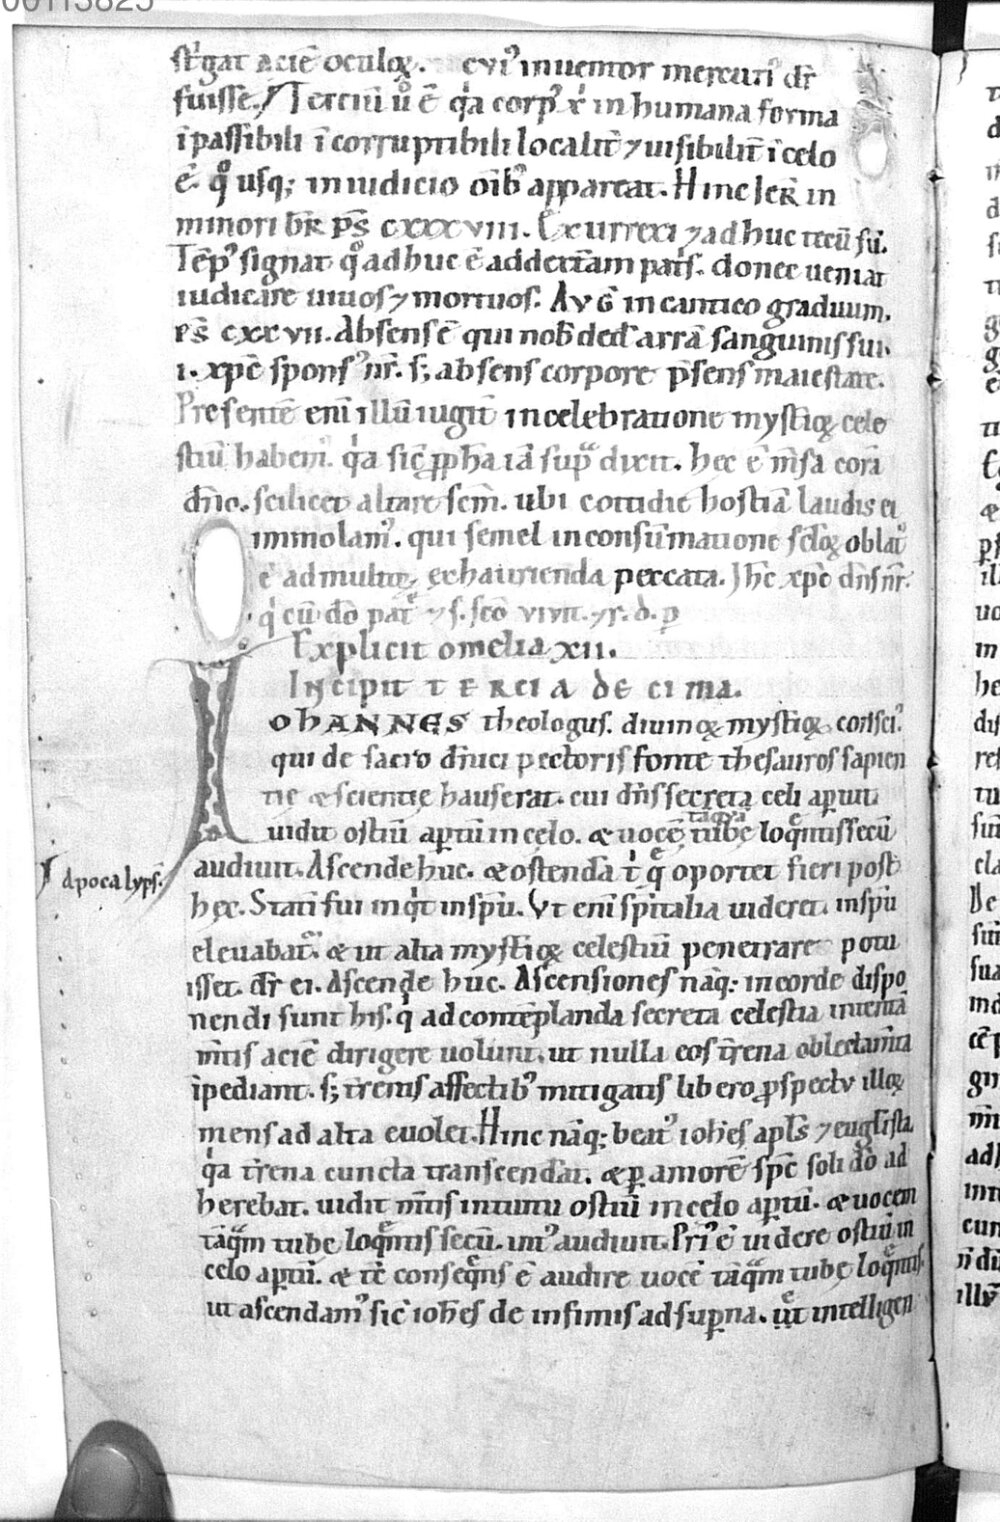 st'gat aciē oculoꝝ. cui᾿ inuentor mercuri᾿ dr̄
fuisse. Terciū u̾ ē q'a corp᾿ x̄ in humana forma
īpassibili ī corruptibili localit̄ ⁊ uisibilit̄ ī celo
ē. qͦ usq; in iudicio oīb᾿ appareat. Hinc Ier̄ in
minori br̄ ps̄ cxxxviii. Exurrexi ⁊ adhuc tecū sū.
Tēp᾿ signat qͦ adhuc ē ad dextam pat's. donec ueniat
iudicare uiuos ⁊ mortuos. Avḡ in cantico graduum.
ps̄ cxxvii. Absens ē qui nob̄ ded̄ arrā sanguinis sui.
ı. xp̄c spons᾿ nr̄. s; absens corpore p̄sens maiestate.
Presentē enī illū iugit̄ in celebratione mysticoꝝ cele
stiū habem᾿. q'a sic̄ ꝓph̄a iā sup͛ dixit. hec ē m̄sa corā
dn̄o. scilicet altare scm̄. ubi cottidie hostiā laudis ei
immolam᾿. qui semel in consūmatione sclōꝝ oblat᾿
ē ad multoꝝ exhaurienda peccata. Ih̄c xp̄c dn̄s nr̄.
q' cū dō patͤ ⁊ s. scō vivit. ⁊ r. d. p
Explicit omelia xii.
Incipit TERCIA DECIma.
IOHANNES theologus. diuinoꝝ mysticoꝝ consci᾿.
qui de sacro dn̄ici pectoris fonte thesauros sapien
tię & scientię hauserat. cui dn̄s secreta celi aperuit.
uidit ostiū apertū in celo. & uocē tāquā tubę loqͤntis secū
Apocalyps̄.
audiuit. Ascende huc. & ostendā t' qͤ oportet fieri post
hęc. Statī fui inq't in spū. Vt enī spitalia uideret. in spū
eleuabat᾿. & ut alta mysticoꝝ celestiū penetrare potu
isset. dr̄ ei. Ascende huc. Ascensiones nāq; in corde dispo
nendi sunt his. q' ad contēplanda secreta celestia intentā
m̄tis aciē dirigere uolunt. ut nulla eos t̄rena oblectam̄ta
īpediant. s; t̄renis affectib᾿ mitigatis libero ꝓspectu illoꝝ
mens ad alta euolet. Hinc nāq; beat᾿ ioh̄es apl̄s ⁊ euḡlista
q'a t̄rena cuncta transcendat. & ꝑ amorē spc̄ soli dō ad
herebat. uidit m̄tis intuitu ostiū in celo apertū. & uocem
tāquam tubę loqͤntis secū. in᾿ audiuit. Pri᾿ ē uidere ostiū in
celo apertū. & tc̄ conseqͤns ē audire uocē tāquam tubę loqͤntis.
ut ascendam᾿ sic̄ ioh̄es de infimis ad superna. ut intelligen